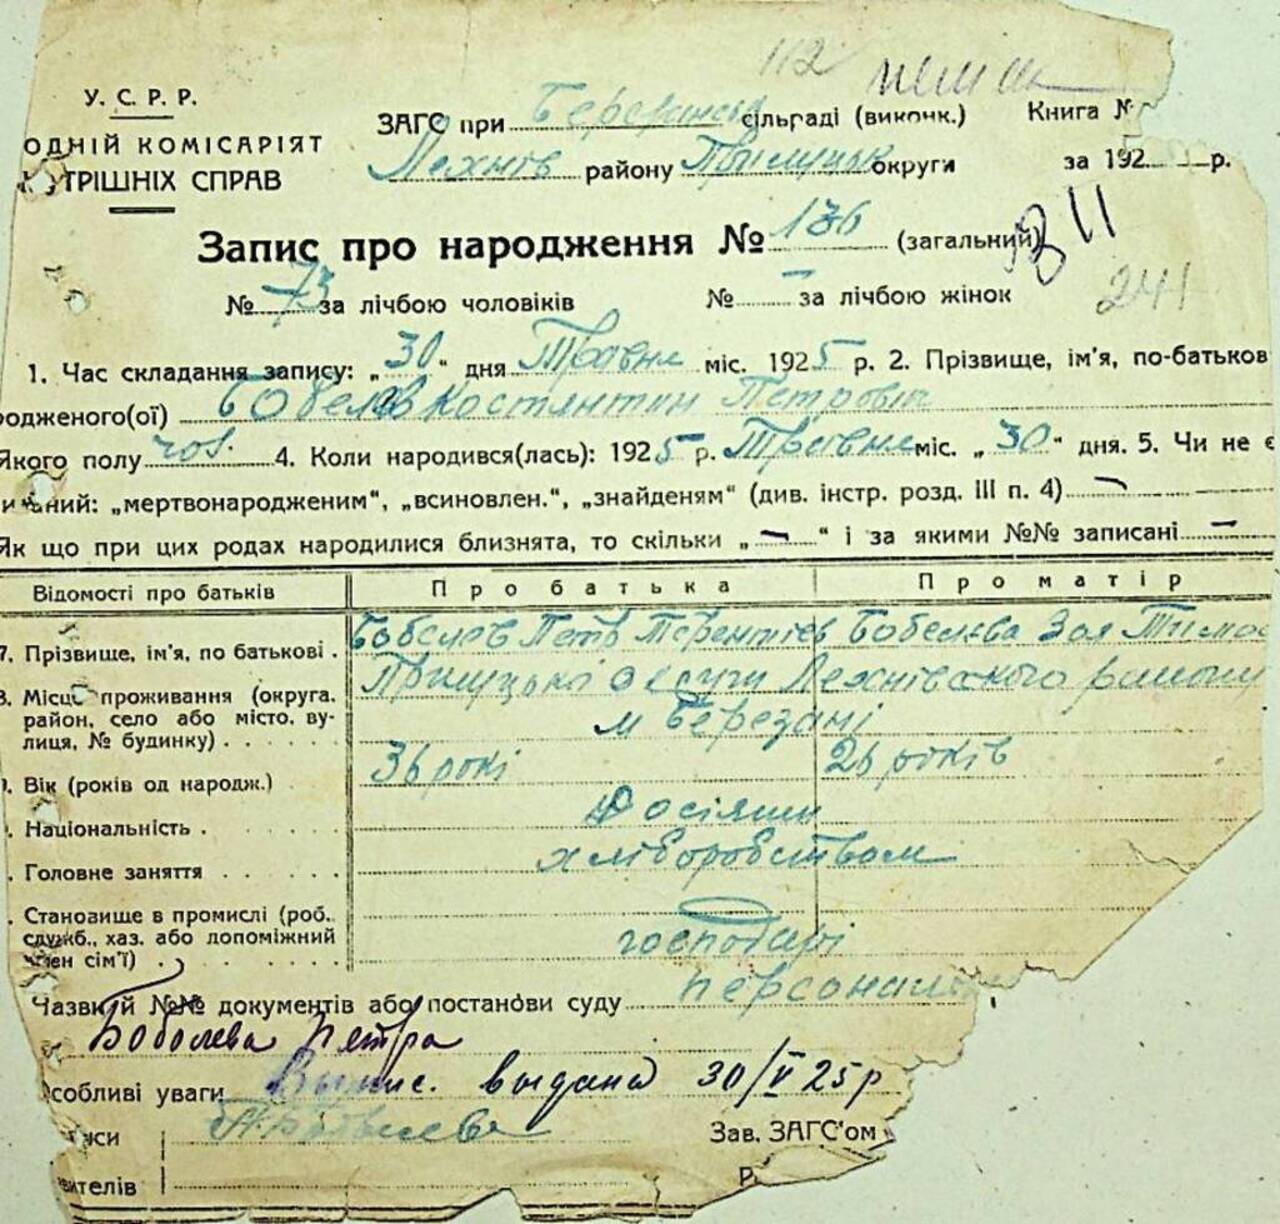 112
У. С. Р. Р.
ОДНІЙ КОМІСАРІЯТ
ТРІШНІХ СПРАВ
ЗАГС при Березанськ сільраді (виконк.) Книга №
Яехнів району Прилуцьк округи за 1925 р.
Запис про народження № 136 (загальний)
№ 73 за лічбою чоловіків № – за лічбою жінок
241
1. Час складання запису: „30“ дня Травня міс. 1925 р. 2. Прізвище, ім'я, по-батьков
родженого(ої) Бобелєв Костянтин Петрович
Якого полу чол. 4. Коли народився(лась): 1925 р. Травня міс. „30“ дня. 5. Чи не є
„мертвонародженим“, „всиновлен.“, „знайденям“ (див. інстр. розд. III п. 4) –
Як що при цих родах народилися близнята, то скільки „–“ і за якими №№ записані –
Відомості про батьків Про батька Про матір
7. Прізвище, ім'я, по батькові . Бобелєв Петр Терентієв Бобелєва Зоя Тимоф
8. Місце проживання (округа, Прилуцької округи Яехнівського району
район, село або місто, ву- м Березані
лиця, № будинку) . . . . . .
Вік (років од народж.) 36 років 26 років
Національність . Росіяни
Головне заняття хліборобством
Становище в промислі (роб.,
служб., хаз. або допоміжний господарі
член сім'ї) . . . . . . .
Назви й №№ документів або постанови суду персональн
Бобелева Петра
собливі уваги Выпис. выдана 30/V 25 р
Зав. ЗАГС'ом
вителів Р